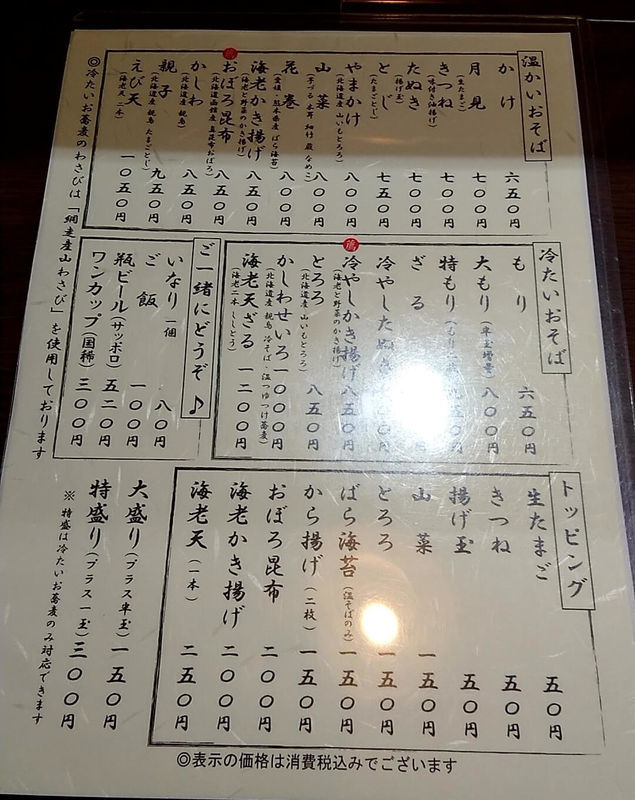 温かいおそば
かけ 六五〇円
月見 (生たまご) 七〇〇円
きつね (味付き油揚げ) 七〇〇円
たぬき (揚げ玉) 七〇〇円
とじ (たまごとじ) 七五〇円
やまかけ (北海道産 山いもとろろ) 八〇〇円
山菜 (子づる 木耳 細竹 蕨 なめこ) 八〇〇円
花巻 (愛媛・熊本県産 ばら海苔) 八〇〇円
海老かき揚げ (海老と野菜のかき揚げ) 八五〇円
おぼろ昆布 (北海道函館産 真昆布おぼろ) 八五〇円
かしわ (北海道産 親鳥) 八五〇円
親子 (北海道産 親鳥 たまごとじ) 九五〇円
えび天 (海老天 二本) 一〇五〇円
◎冷たいお蕎麦のわさびは「網走産山わさび」を使用しております
冷たいおそば
もり 六五〇円
大もり (半玉増量) 八〇〇円
特もり (もり二枚) 九五〇円
ざる 円
冷やしたぬき 円
冷やしかき揚げ (海老と野菜のかき揚げ) 八五〇円
とろろ (北海道産 山いもとろろ) 八五〇円
かしわせいろ (北海道産 親鳥 冷そば・温つゆつけ蕎麦) 一〇〇〇円
海老天ざる (海老二本 ししとう) 一二〇〇円
ご一緒にどうぞ♪
いなり 一個 八〇円
ご飯 一〇〇円
瓶ビール(サッポロ) 五二〇円
ワンカップ(国稀) 三〇〇円
トッピング
生たまご 五〇円
きつね 五〇円
揚げ玉 五〇円
山菜 一五〇円
とろろ 一五〇円
ばら海苔 (温そばのみ) 一五〇円
から揚げ (二枚) 一五〇円
おぼろ昆布 二〇〇円
海老かき揚げ 二〇〇円
海老天 (一本) 二五〇円
大盛り(プラス半玉) 一五〇円
特盛り(プラス一玉) 三〇〇円
※ 特盛は冷たいお蕎麦のみ対応できます
◎表示の価格は消費税込みでございます